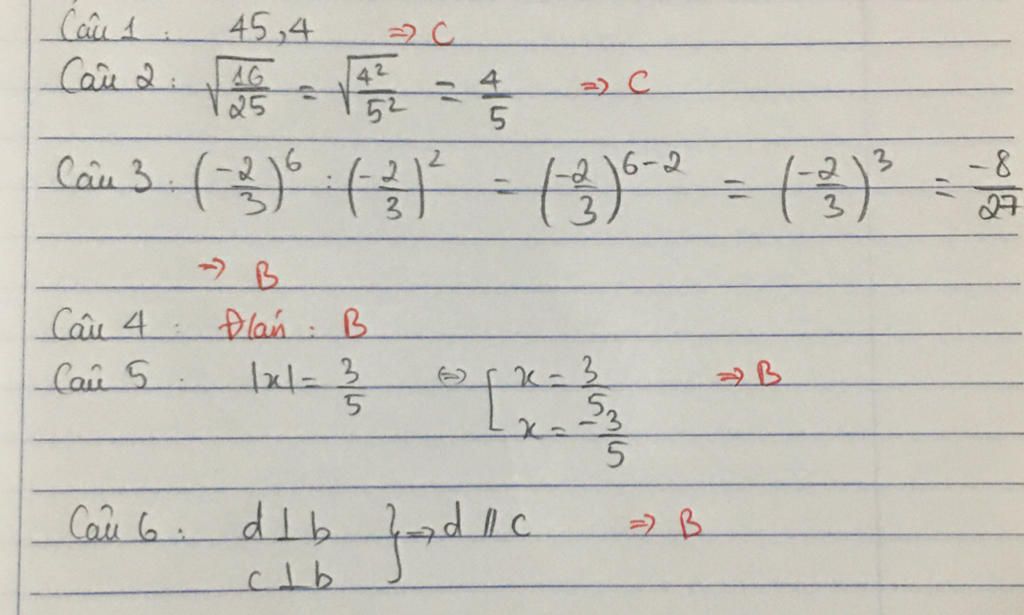 Câu 1 : 45,4 => C
Câu 2 : √(16/25) = √(4²/5²) = 4/5 => C
Câu 3 : (-2/3)⁶ : (-2/3)² = (-2/3)⁶⁻² = (-2/3)³ = -8/27
=> B
Câu 4 : Đ/án : B
Câu 5 : |x| = 3/5 <=> [ x = 3/5 => B
x = -3/5
Câu 6 : d ⊥ b } => d // c => B
c ⊥ b